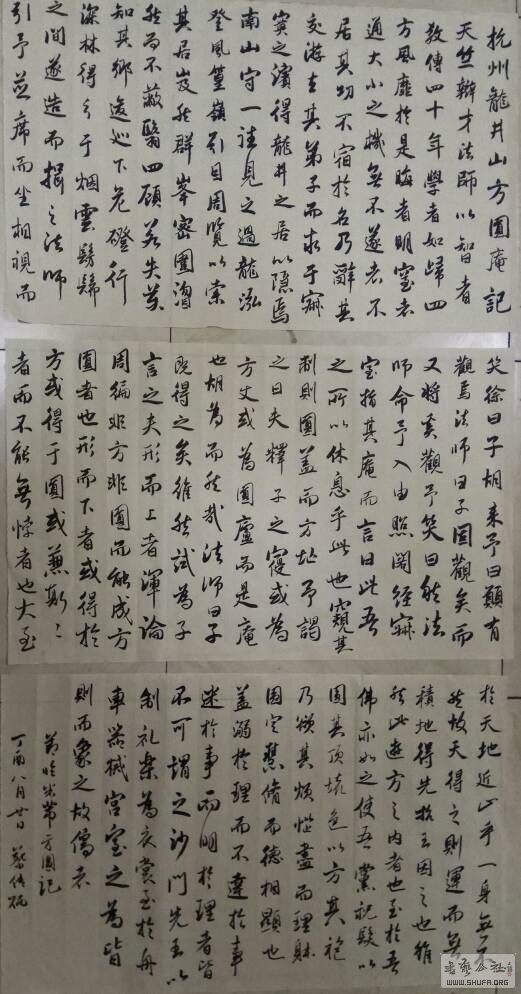 杭州龍井山方圓庵記
天竺辯才法師以智者
教傳四十年學者如歸四
方風靡於是晦者明窒者
通大小之機無不遂者不
居其功不宿於名乃辭其
交游去其弟子而求于寂
寞之濱得龍井之居以隱焉
南山守一往見之過龍泓
登風篁嶺引目周覽以索
其居岌然群峯密圍溜
然而不蔽翳四顧若失莫
知其鄉逡巡下危磴行
深林得之于烟雲髣髴
之間遂造而揖之法師
引予並席而坐相視而
笑徐曰子胡來予曰願有
觀焉法師曰子固觀矣而
又將奚觀予笑曰然法
師命予入由照閣經寂
室指其庵而言曰此吾
之所以休息乎此也窺其
制則圓蓋而方址予謁
之曰夫釋子之寢或為
方丈或為圓廬而是庵
也胡為而然哉法師曰子
既得之矣雖然試為子
言之夫形而上者渾論
周徧非方非圓而能成方
圓者也形而下者或得於
方或得于圓或兼斯二
者而不能無悖者也大至
於天地近止乎一身無不
然故天得之則運而無
積地得先王因之也雖
然此遊方之內者也至於吾
佛亦如之使吾黨祝髮以
圓其頂壞色以方其袍
乃欲其煩惱盡而理體
圓定慧脩而德相顯也
蓋溺於理而不達於事
迷於事而明於理者皆
不可謂之沙門先王以
制禮樂為衣裳至於舟
車器械宮室之為皆
則而象之故儒者
節臨米芾方圓記
丁酉八月廿日 蔡
書藝公社
WWW.SHUFA.ORG